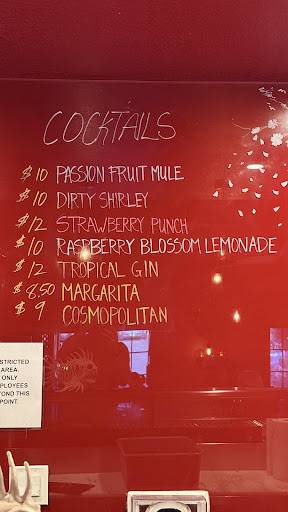 COCKTAILS
$10 PASSION FRUIT MULE
$10 DIRTY SHIRLEY
$12 STRAWBERRY PUNCH
$10 RASPBERRY BLOSSOM LEMONADE
$12 TROPICAL GIN
$8.50 MARGARITA
$9 COSMOPOLITAN
STRICTED
AREA.
ONLY
PLOYEES
YOND THIS
POINT.